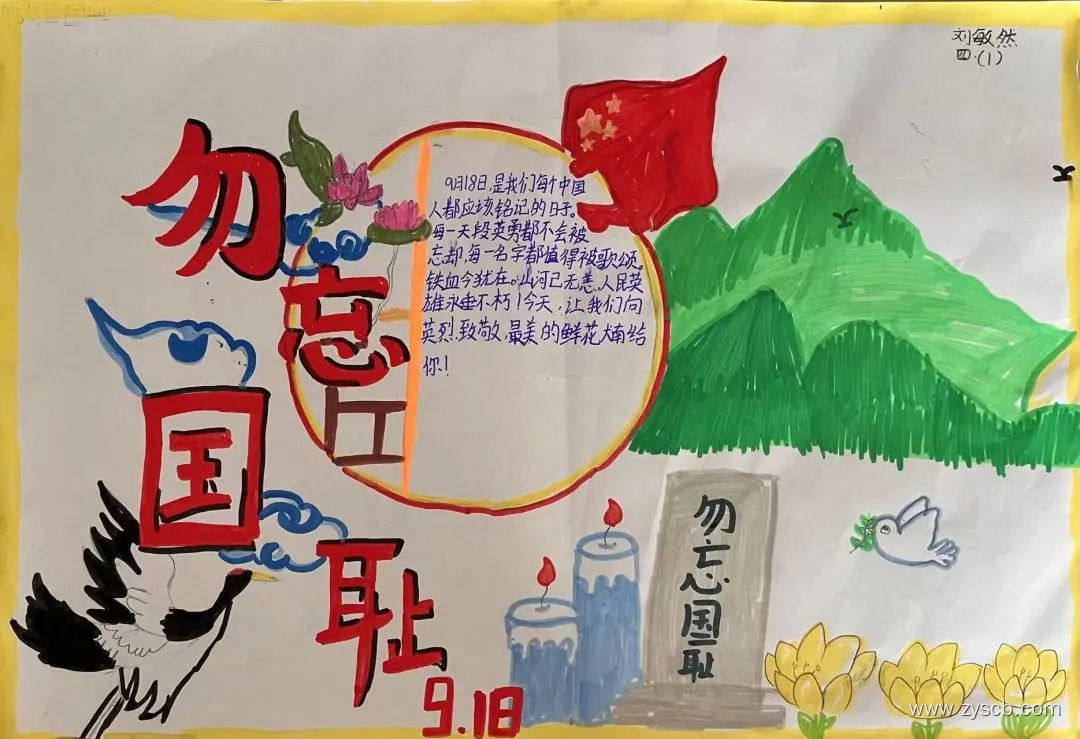 刘敏然
四.(1)
勿忘国耻
9.18
9月18日,是我们每个中国
人都应该铭记的日子。
每一天段英勇都不会被
忘却,每一名字都值得被歌颂。
铁血今犹在。山河已无恙,人民英
雄永垂不朽!今天,让我们向
英烈致敬,最美的鲜花献给
你!
勿忘国耻
www.zyscb.com